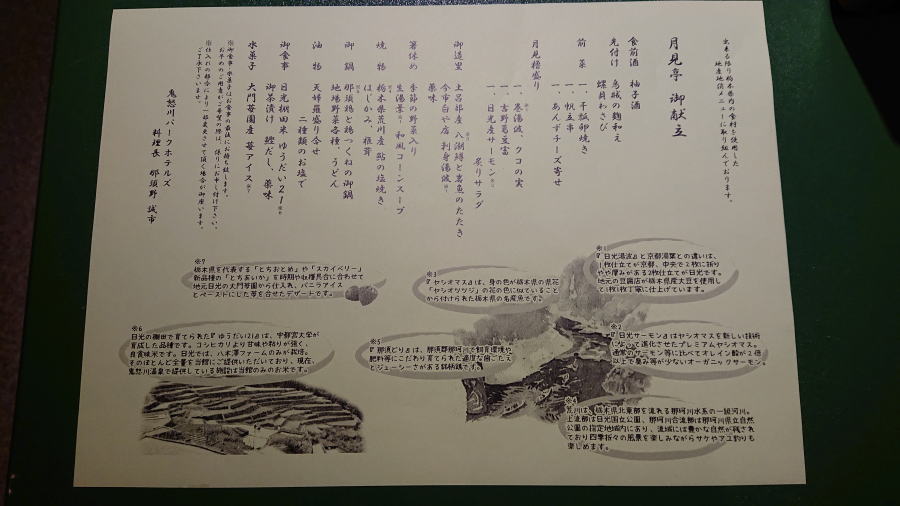 出来る限り栃木県内の食材を使用した
地産地消メニューに取り組んでおります。
月見亭 御献立
食前酒 柚子酒
先付け 烏賊の麹和え
螺貝わさび
前菜 一、干瓢卵焼き
一、帆立串
一、あんずチーズ寄せ
月見櫓盛り
一、巻湯波、クコの実
一、吉野葛豆富
一、日光産サーモン※2 炙りサラダ
御造里 上呂部産 八汐鱒と真魚のたたき
今市白や店 刺身湯波※1
薬味
箸休め 季節の野菜入り
生湯葉※1 和風コーンスープ
焼物 栃木県荒川産 鮎の塩焼き
はじかみ、椎茸
御鍋 那須鶏と鶏つくねの御鍋
地場野菜各種、うどん
油物 天婦羅盛り合せ
二種類のお塩で
御食事 日光棚田米 ゆうだい21※6
御茶漬け 鰹だし、薬味
水菓子 大門苺園産 苺アイス※7
※御食事、水菓子はお食事の最後にお持ち致します。
お早めのご用意がご希望の際は、係りにお申し付け下さい。
※仕入れの都合により一部変更させて頂く場合が御座います。
ご了承下さいませ。
鬼怒川パークホテルズ
料理長 那須野 誠市
※1
『日光湯波』と京都湯葉との違いは、
1枚仕立てが京都、中央で2枚に折り
やや厚みがある2枚仕立てが日光です。
地元の豆腐店が栃木県産大豆を使用し
て1枚1枚丁寧に仕上げています。
※2
『日光サーモン』はヤシオマスを新しい技術
によって進化させたプレミアムヤシオマス。
通常のサーモン等に比べてオレイン酸が2倍
以上で臭み等が少ないオーガニックサーモン。
※3
『ヤシオマス』は、身の色が栃木県の県花
「ヤシオツツジ」の花の色に似ていること
から付けられた栃木県の名産魚です。
※4
荒川は、栃木県北東部を流れる那珂川水系の一級河川。
上流部は日光国立公園、那珂川合流部は那珂川県立自然
公園の指定地域内にあり、流域には豊かな自然が残され
ており四季折々の風景を楽しみながらサケやアユ釣りも
楽しめます。
※5
『那須どり』は、那須野那珂川で飼育環境や
肥料等にこだわり育てられた適度な歯ごたえ
とジューシーさがある銘柄鶏です。
※6
日光の棚田で育てられた『ゆうだい21』は、宇都宮大学が
育成した品種です。コシヒカリより甘味や粘りが強く、
良食味米です。日光では、八木澤ファームのみが栽培。
そのほとんど全量を当館にご提供いただいており、現在、
鬼怒川温泉で提供している施設は当館のみのお米です。
※7
栃木県を代表する「とちおとめ」や「スカイベリー」
新品種の「とちあいか」を時期や収穫具合に合わせて
地元日光の大門苺園から仕入れ、バニラアイス
とペーストにした苺を合せたデザートです。